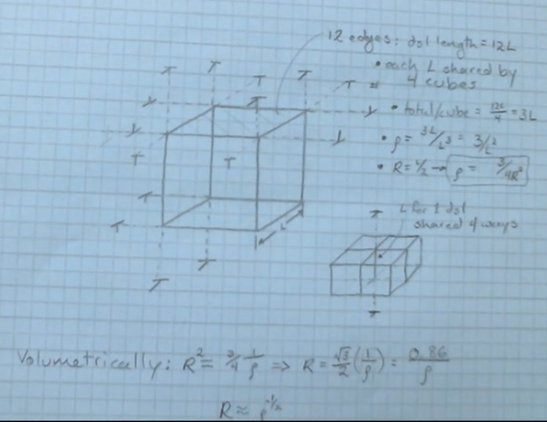 12 edges: dsl length = 12L
• each L shared by
4 cubes
• total/cube = 12L/4 = 3L
• ρ = 3L/L³ = 3/L²
• R = L/2 → ρ = 3/4R²
T T T T T
T
T
T
L
T
T
T
L for 1 dsl
shared 4 ways
T
T
Volumetrically: R² = 3/4 1/ρ ⇒ R = √3/2 (1/ρ) = 0.86/ρ
R ≈ ρ^-1/2